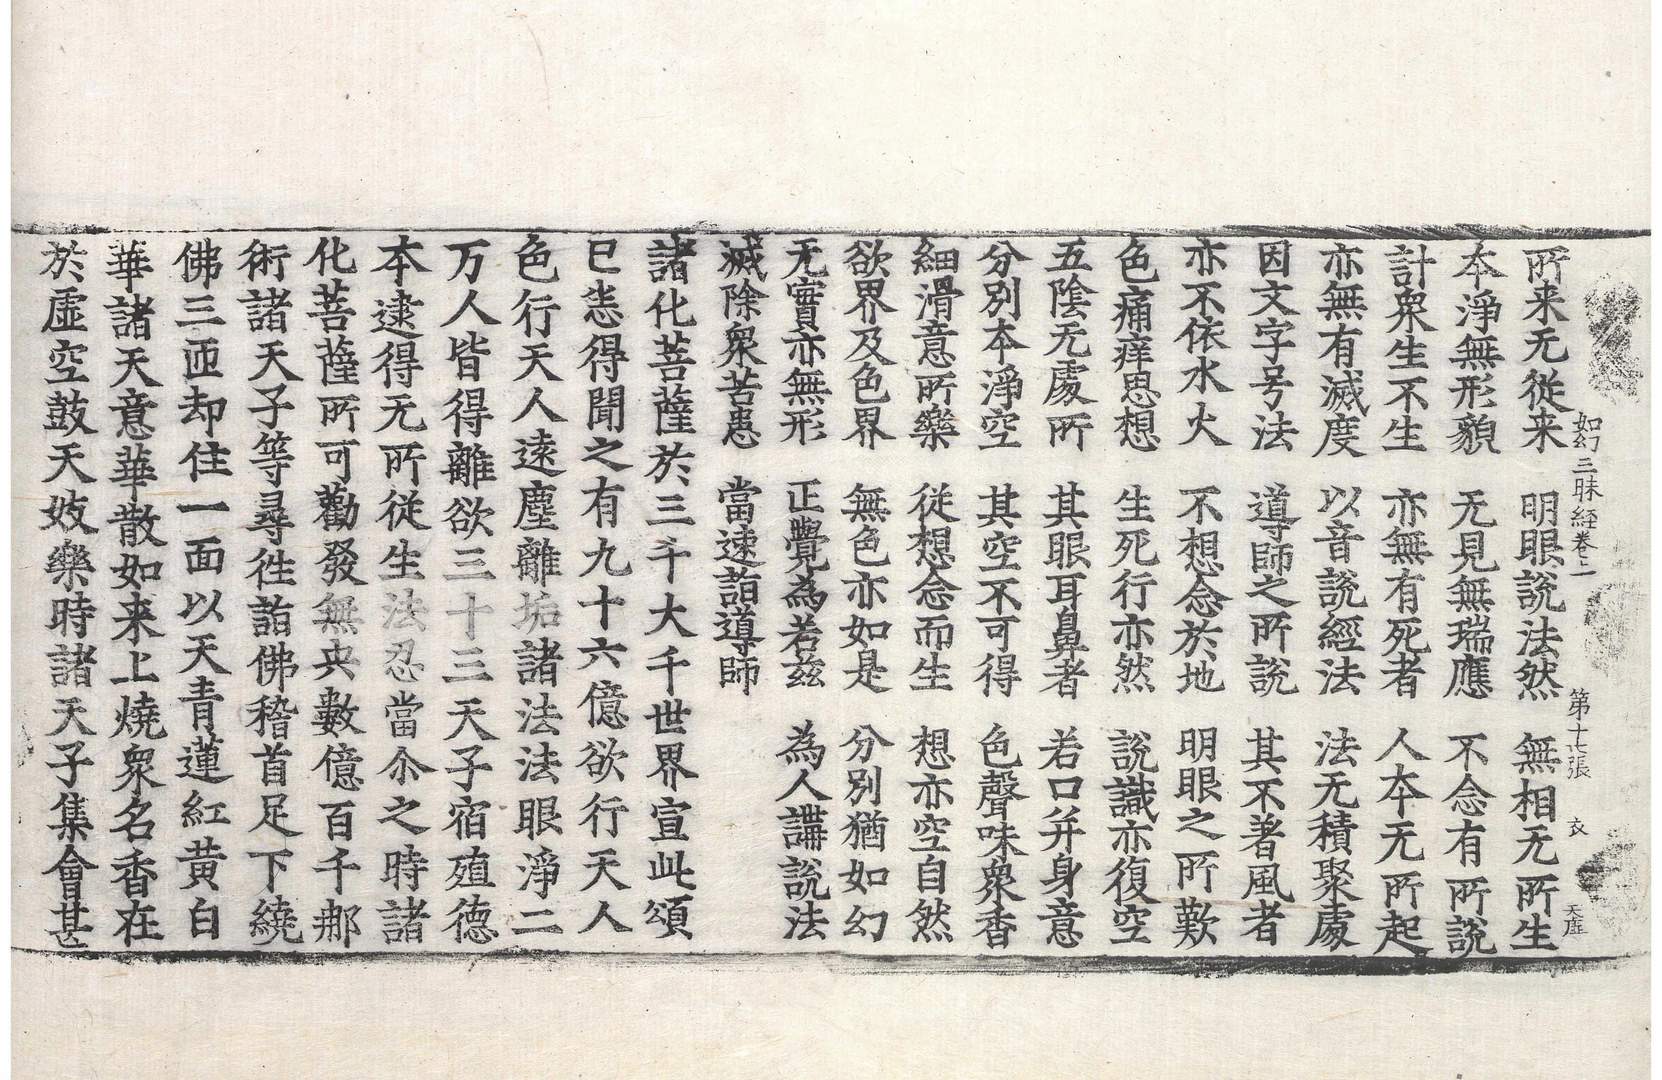 如幻三昧経卷上 第十七張 衣 天虛
所来无從来 明眼說法然 無相无所生
本淨無形貌 无見無瑞應 不念有所說
計衆生不生 亦無有死者 人本无所起
亦無有滅度 以音說經法 法无積聚處
因文字号法 導師之所說 其不著風者
亦不依水火 不想念於地 明眼之所歎
色痛痒思想 生死行亦然 說識亦復空
五陰无處所 其眼耳鼻者 若口并身意
分別本淨空 其空不可得 色聲味衆香
細滑意所樂 從想念而生 想亦空自然
欲界及色界 無色亦如是 分別猶如幻
无實亦無形 正覺為若茲 為人講說法
滅除衆苦患 當速詣導師
諸化菩薩於三千大千世界宣此頌
已悉得聞之有九十六億欲行天人
色行天人遠塵離垢諸法法眼淨二
万人皆得離欲三十三天子宿殖德
本逮得无所從生法忍當尒之時諸
化菩薩所可勸發無央數億百千那
術諸天子等尋徃詣佛稽首足下繞
佛三匝却住一面以天青蓮紅黃白
華諸天意華散如来上燒衆名香在
於虛空鼓天妓樂時諸天子集會甚